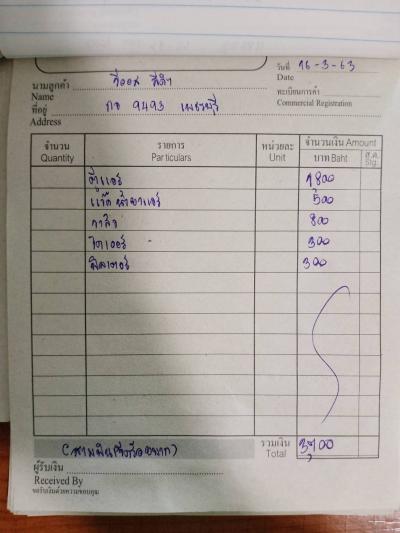 วันที่ 16-3-63
Date
นามลูกค้า วีออส สีดำ
Name
ทะเบียนการค้า
Commercial Registration
ที่อยู่ กอ 9493 เพชรบุรี
Address
จำนวน รายการ หน่วยละ จำนวนเงิน Amount
Quantity Particulars Unit บาท Baht ส.ต. Stg.
ตู้แอร์ 1800
แว๊ค น้ำยาแอร์ 500
วาล์ว 800
ไดเออร์ 300
ฟิลเตอร์ 300
(สามพันเจ็ดร้อยบาท) รวมเงิน 3,700
Total
ผู้รับเงิน
Received By
ขอรับเงินด้วยความขอบคุณ